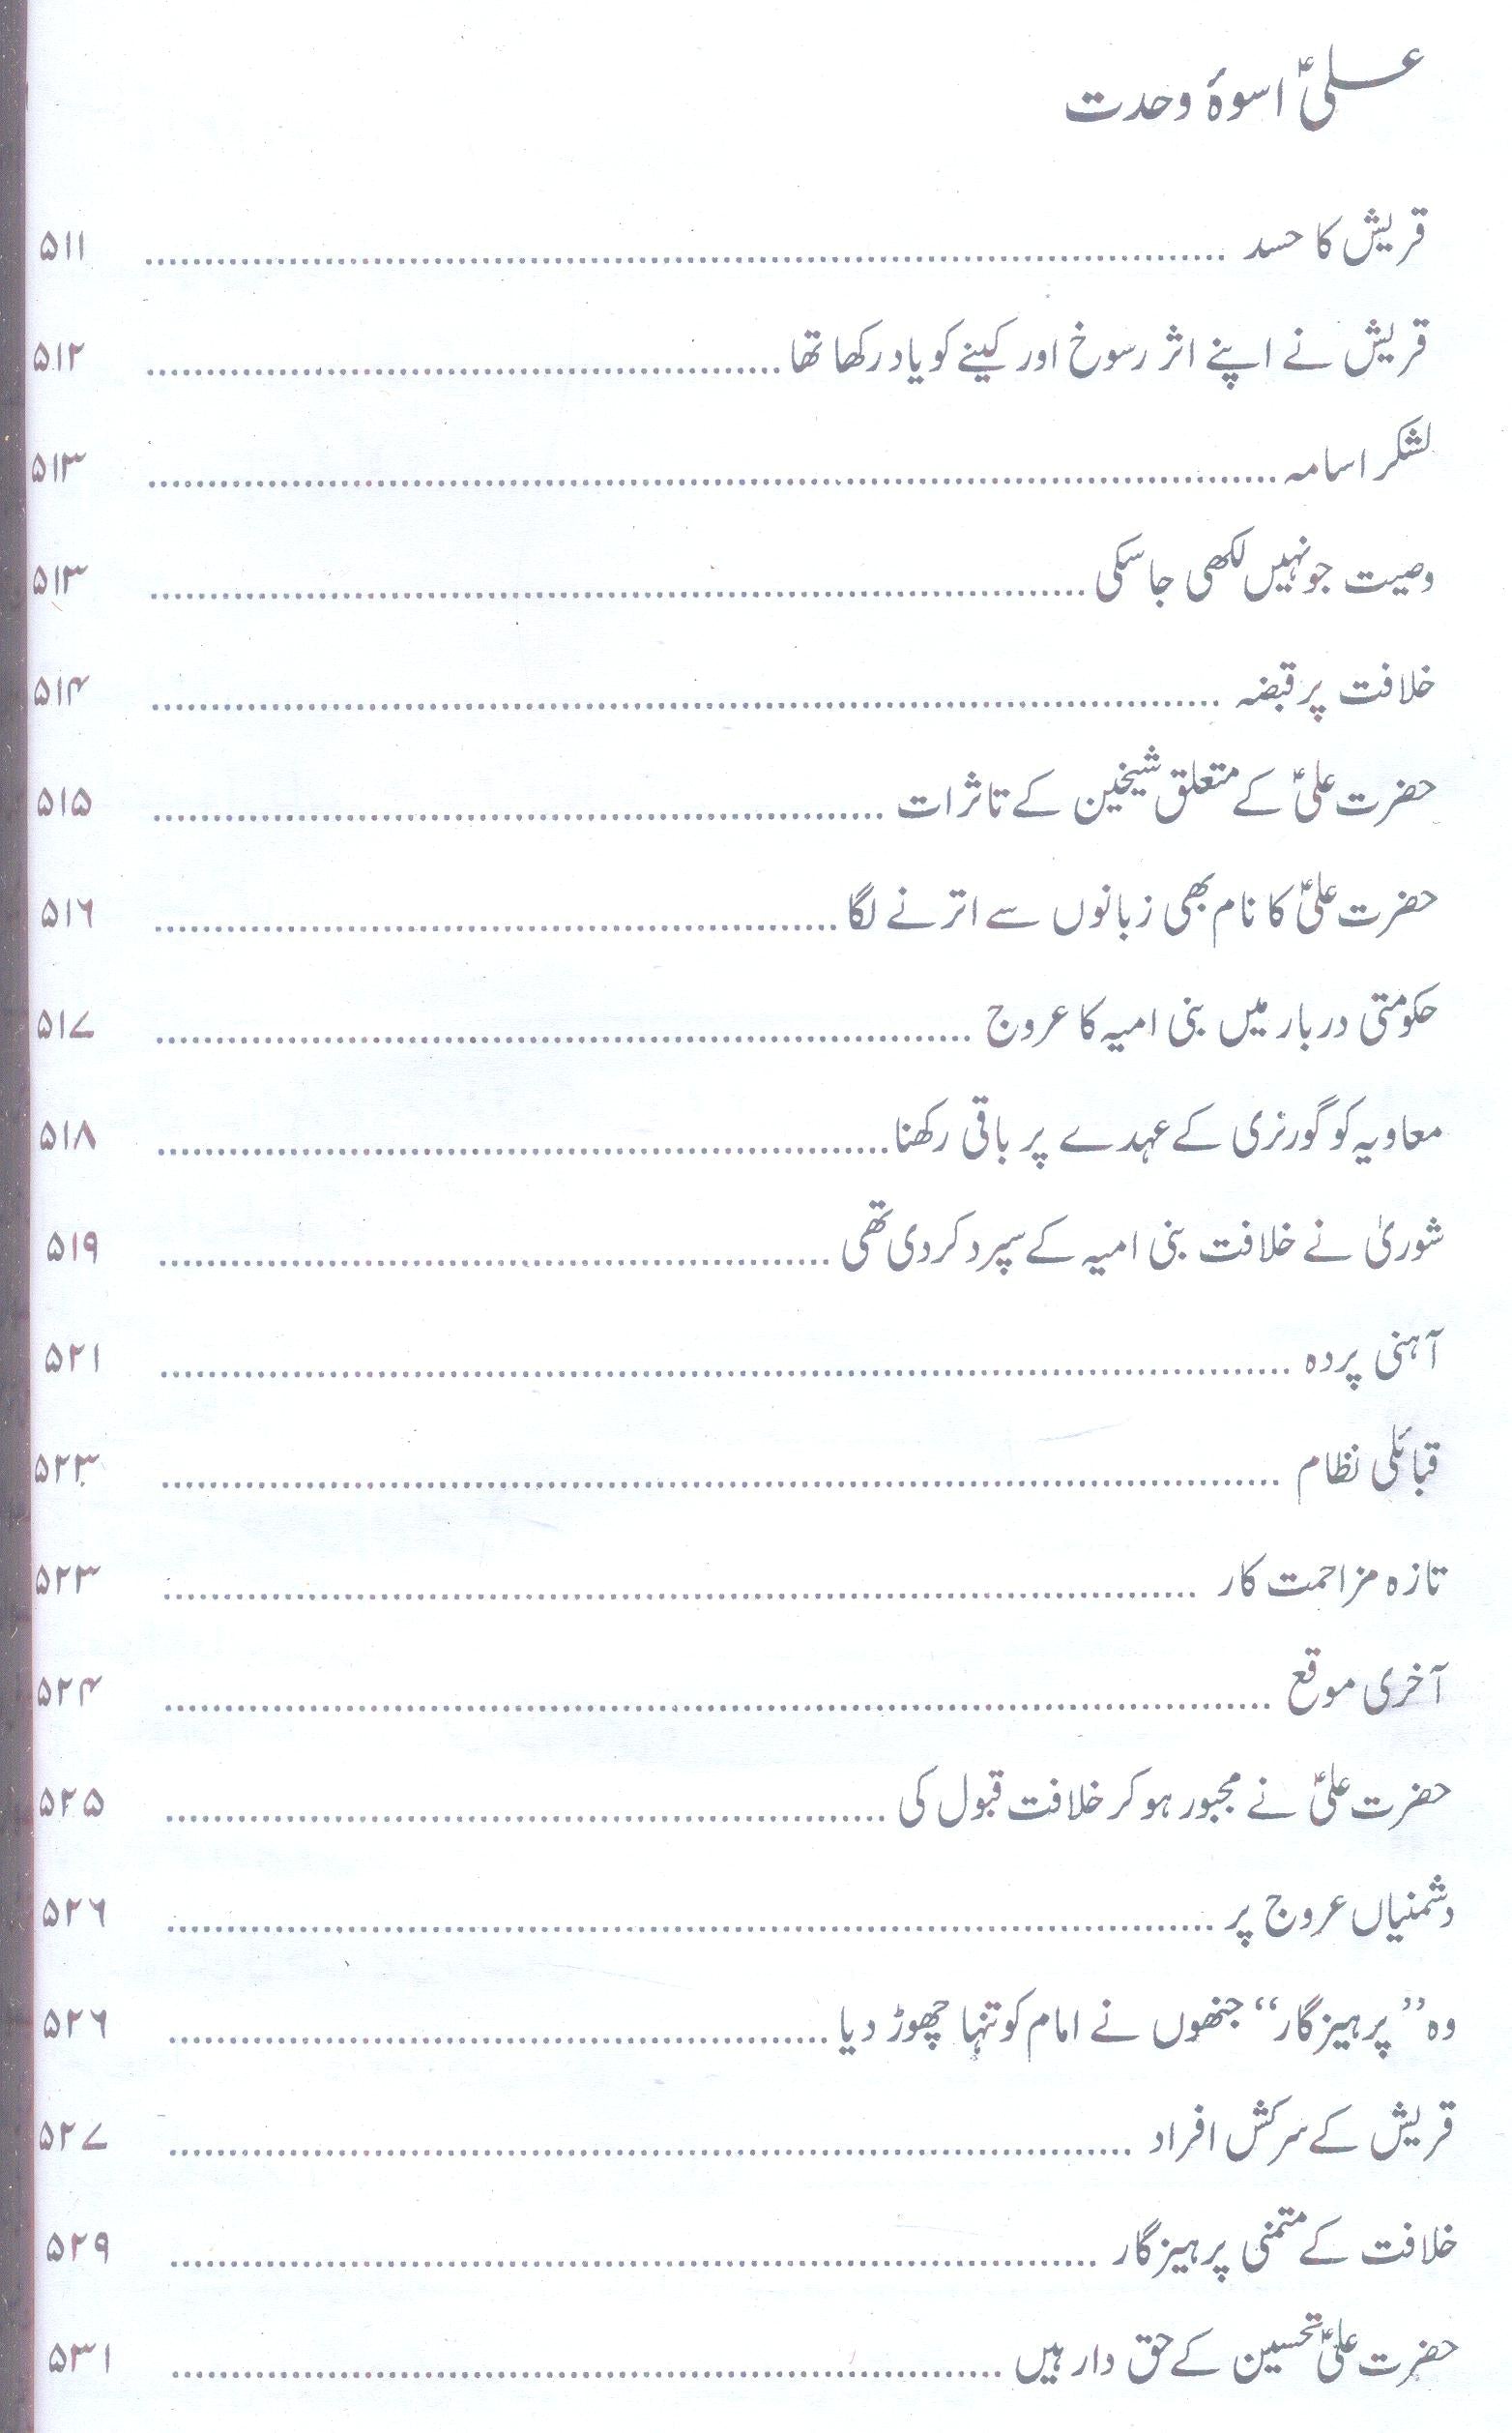 علیؑ اسوۂ وحدت
قریش کا حسد ........ ۵۱۱
قریش نے اپنے اثر رسوخ اور کینے کو یاد رکھا تھا ........ ۵۱۲
لشکر اسامہ ........ ۵۱۳
وصیت جو نہیں لکھی جا سکی ........ ۵۱۳
خلافت پر قبضہ ........ ۵۱۴
حضرت علیؑ کے متعلق شیخین کے تاثرات ........ ۵۱۵
حضرت علیؑ کا نام بھی زبانوں سے اترنے لگا ........ ۵۱۶
حکومتی دربار میں بنی امیہ کا عروج ........ ۵۱۷
معاویہ کو گورنری کے عہدے پر باقی رکھنا ........ ۵۱۸
شوریٰ نے خلافت بنی امیہ کے سپرد کر دی تھی ........ ۵۱۹
آہنی پردہ ........ ۵۲۱
قبائلی نظام ........ ۵۲۳
تازہ مزاحمت کار ........ ۵۲۳
آخری موقع ........ ۵۲۴
حضرت علیؑ نے مجبور ہو کر خلافت قبول کی ........ ۵۲۵
دشمنیاں عروج پر ........ ۵۲۶
وہ ”پرہیزگار“ جنھوں نے امام کو تنہا چھوڑ دیا ........ ۵۲۶
قریش کے سرکش افراد ........ ۵۲۷
خلافت کے متمنی پرہیزگار ........ ۵۲۹
حضرت علیؑ تحسین کے حق دار ہیں ........ ۵۳۱